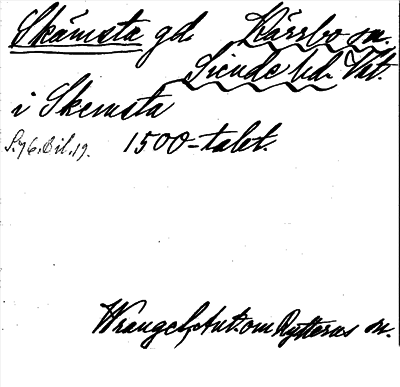 Skämsta gd Kärrbo sn.
Siende hd. Vst.
i Skemsta
S. 76. Bil. 19. 1500-talet.
Wrangel, Ant. om Rytterns sn.